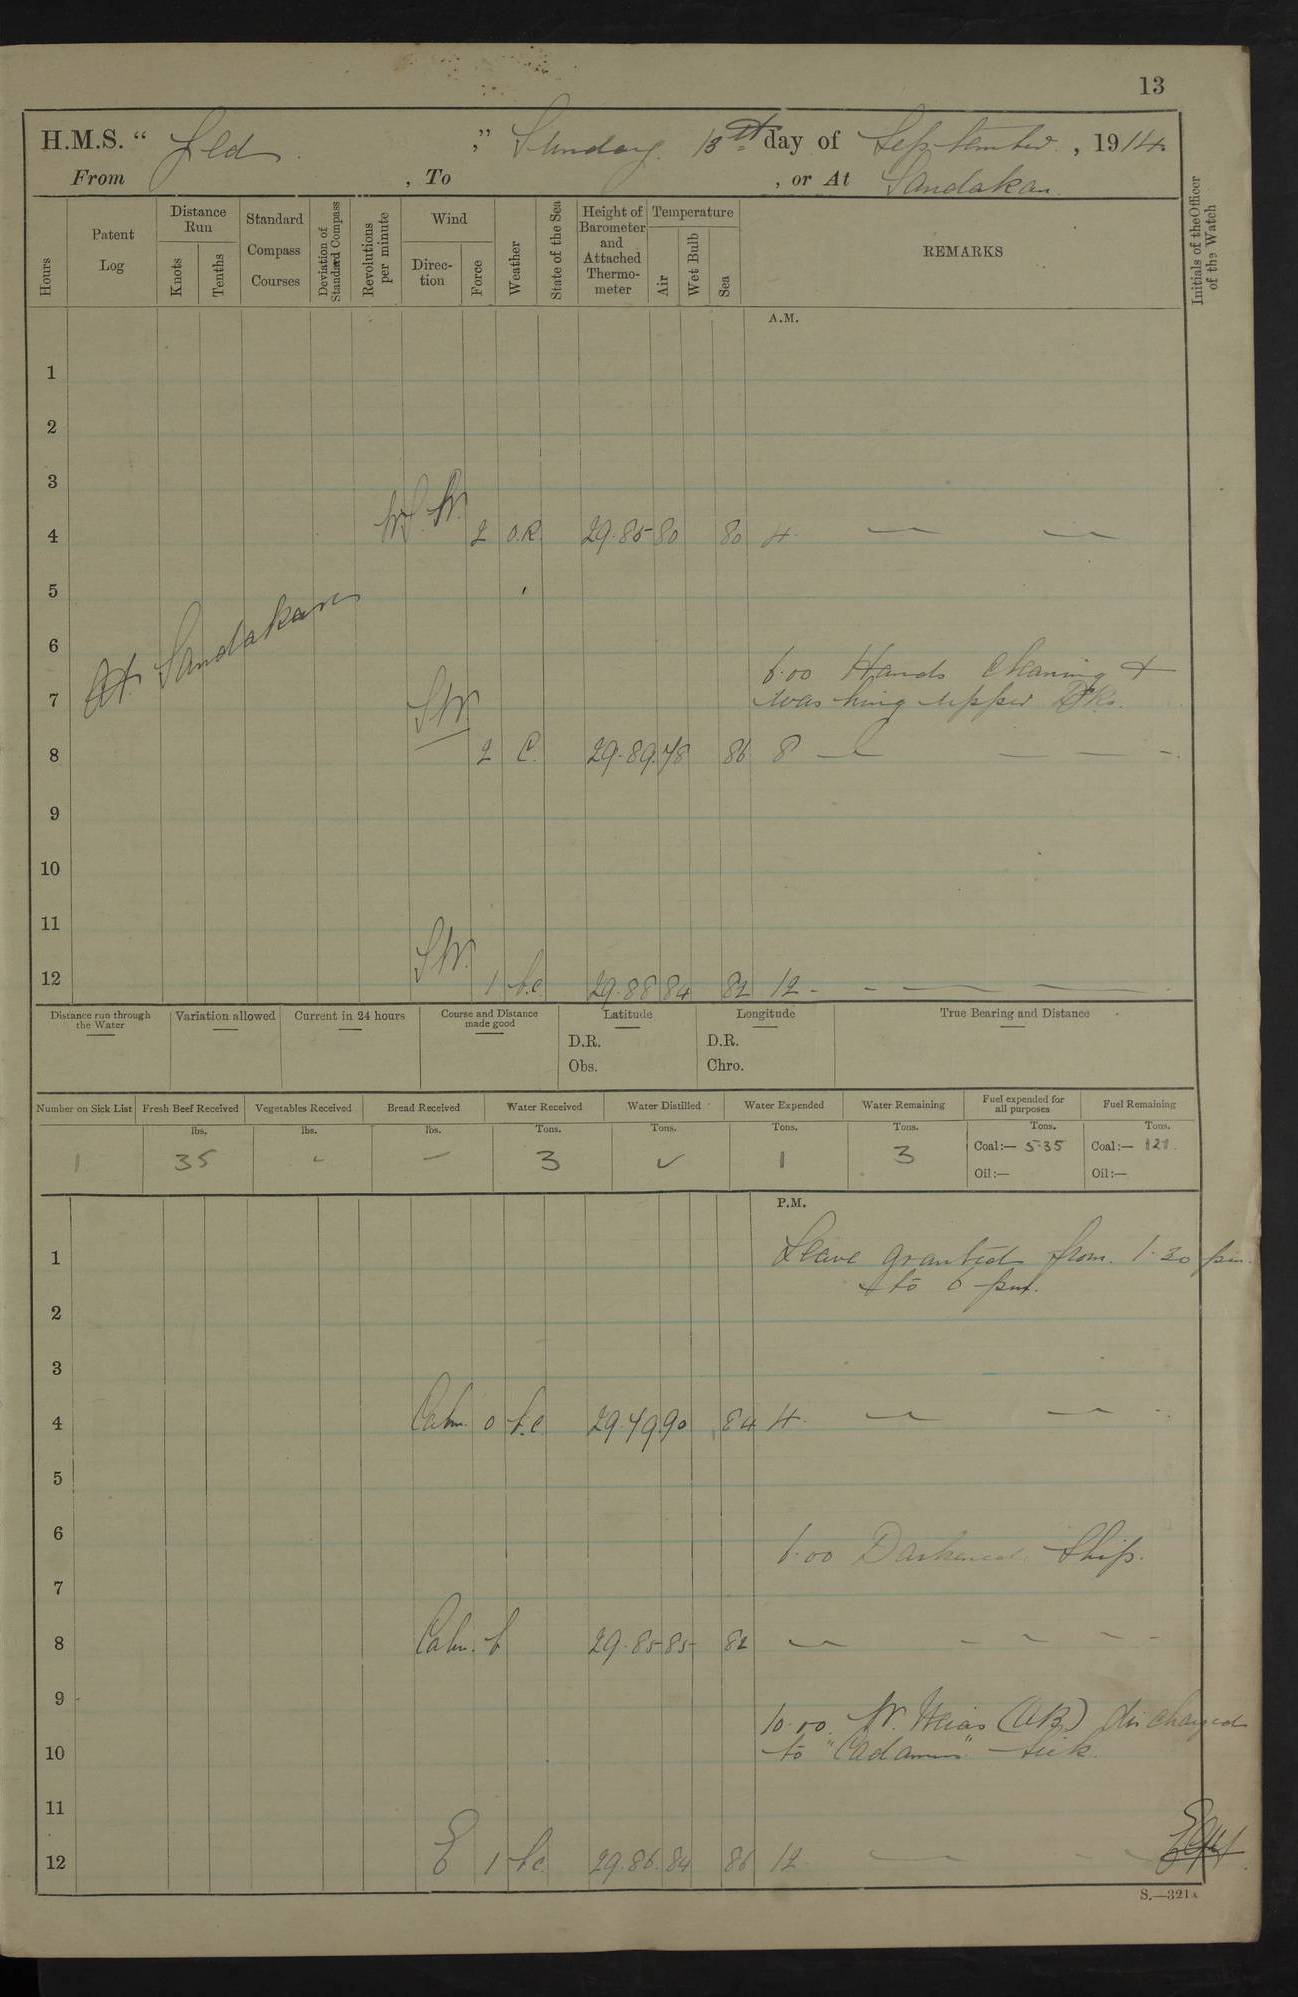 13
H.M.S. " Jed " Sunday 13th day of September, 1914
From , To , or At Sandakan
Hours
Patent Log
Distance Run
Knots
Tenths
Standard Compass Courses
Deviation of Standard Compass
Revolutions per minute
Wind
Direction
Force
Weather
State of the Sea
Height of Barometer and Attached Thermometer
Temperature
Air
Wet Bulb
Sea
REMARKS
Initials of the Officer of the Watch
A.M.
1
2
3
4 2 O.R. 29.85 80 80 4
5
At Sandakan
6 6.00 Hands cleaning +
7 washing upper Dks.
8 SW 2 C. 29.89 78 86 8
9
10
11
12 SW. 1 b.c 29.88 84 82 12
Distance run through the Water
Variation allowed
Current in 24 hours
Course and Distance made good
Latitude
D.R.
Obs.
Longitude
D.R.
Chro.
True Bearing and Distance
Number on Sick List 1
Fresh Beef Received lbs. 35
Vegetables Received lbs. -
Bread Received lbs. -
Water Received Tons. 3
Water Distilled Tons.
Water Expended Tons. 1
Water Remaining Tons. 3
Fuel expended for all purposes Tons.
Coal:— 5.35
Oil:—
Fuel Remaining Tons.
Coal:— 121
Oil:—
P.M.
1 Leave granted from 1.30 pm
to 6 pm.
2
3
4 Calm 0 b.c 29.79 90 84 4
5
6 6.00 Darkened Ship.
7
8 Calm. b 29.85 85 82
9 10.00. W. (AB) discharged
10 to "Cadmus" sick.
11
12 E 1 b.c 29.86 84 86 12
S.—321A